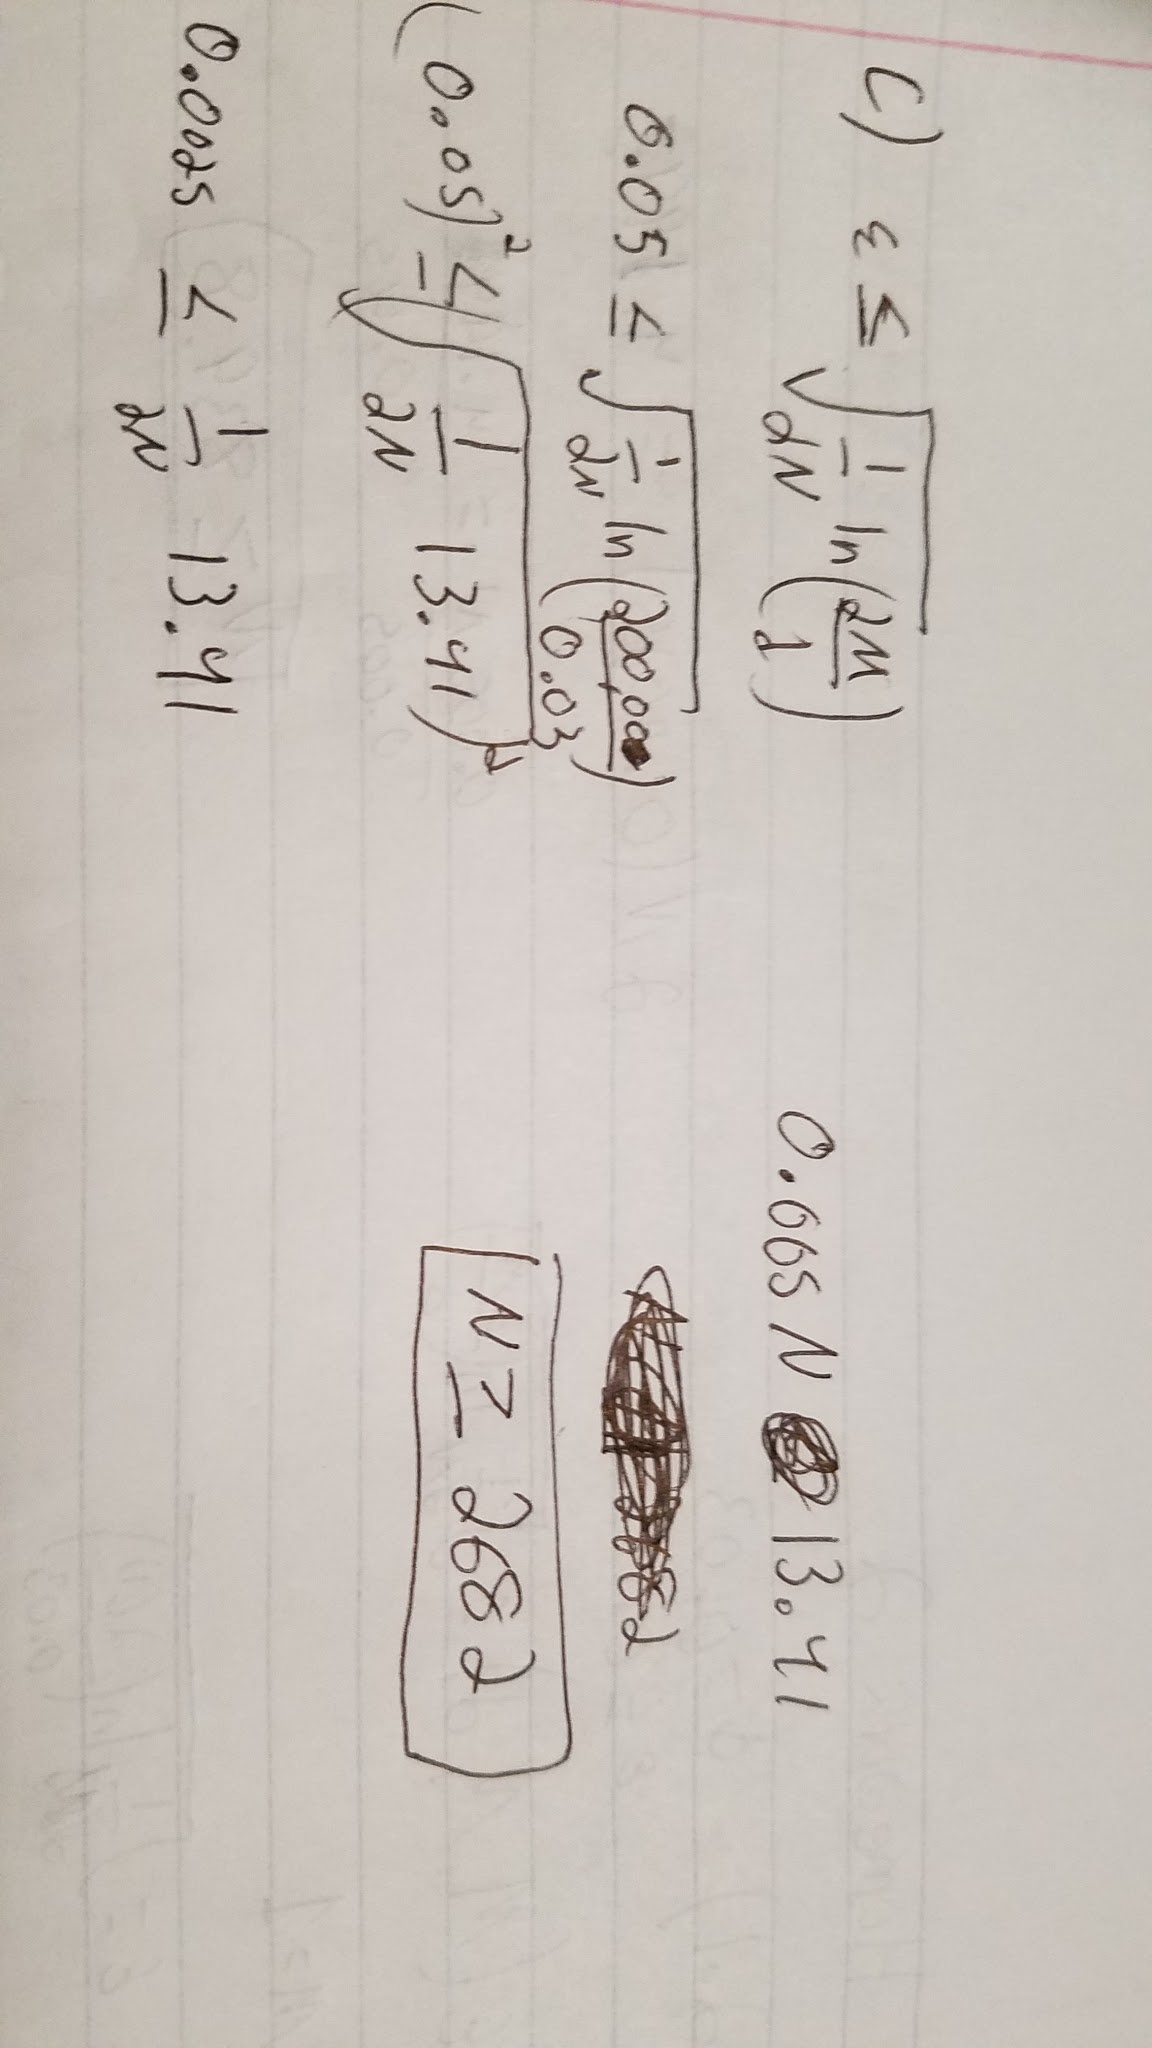 c) ε ≤ √(1/2N ln(2M/δ))
0.05 ≤ √(1/2N ln(200,000/0.03))
(0.05)² ≤ (√(1/2N 13.41))²
0.0025 ≤ 1/2N 13.41
0.005 N 13.41
N ≥ 2682